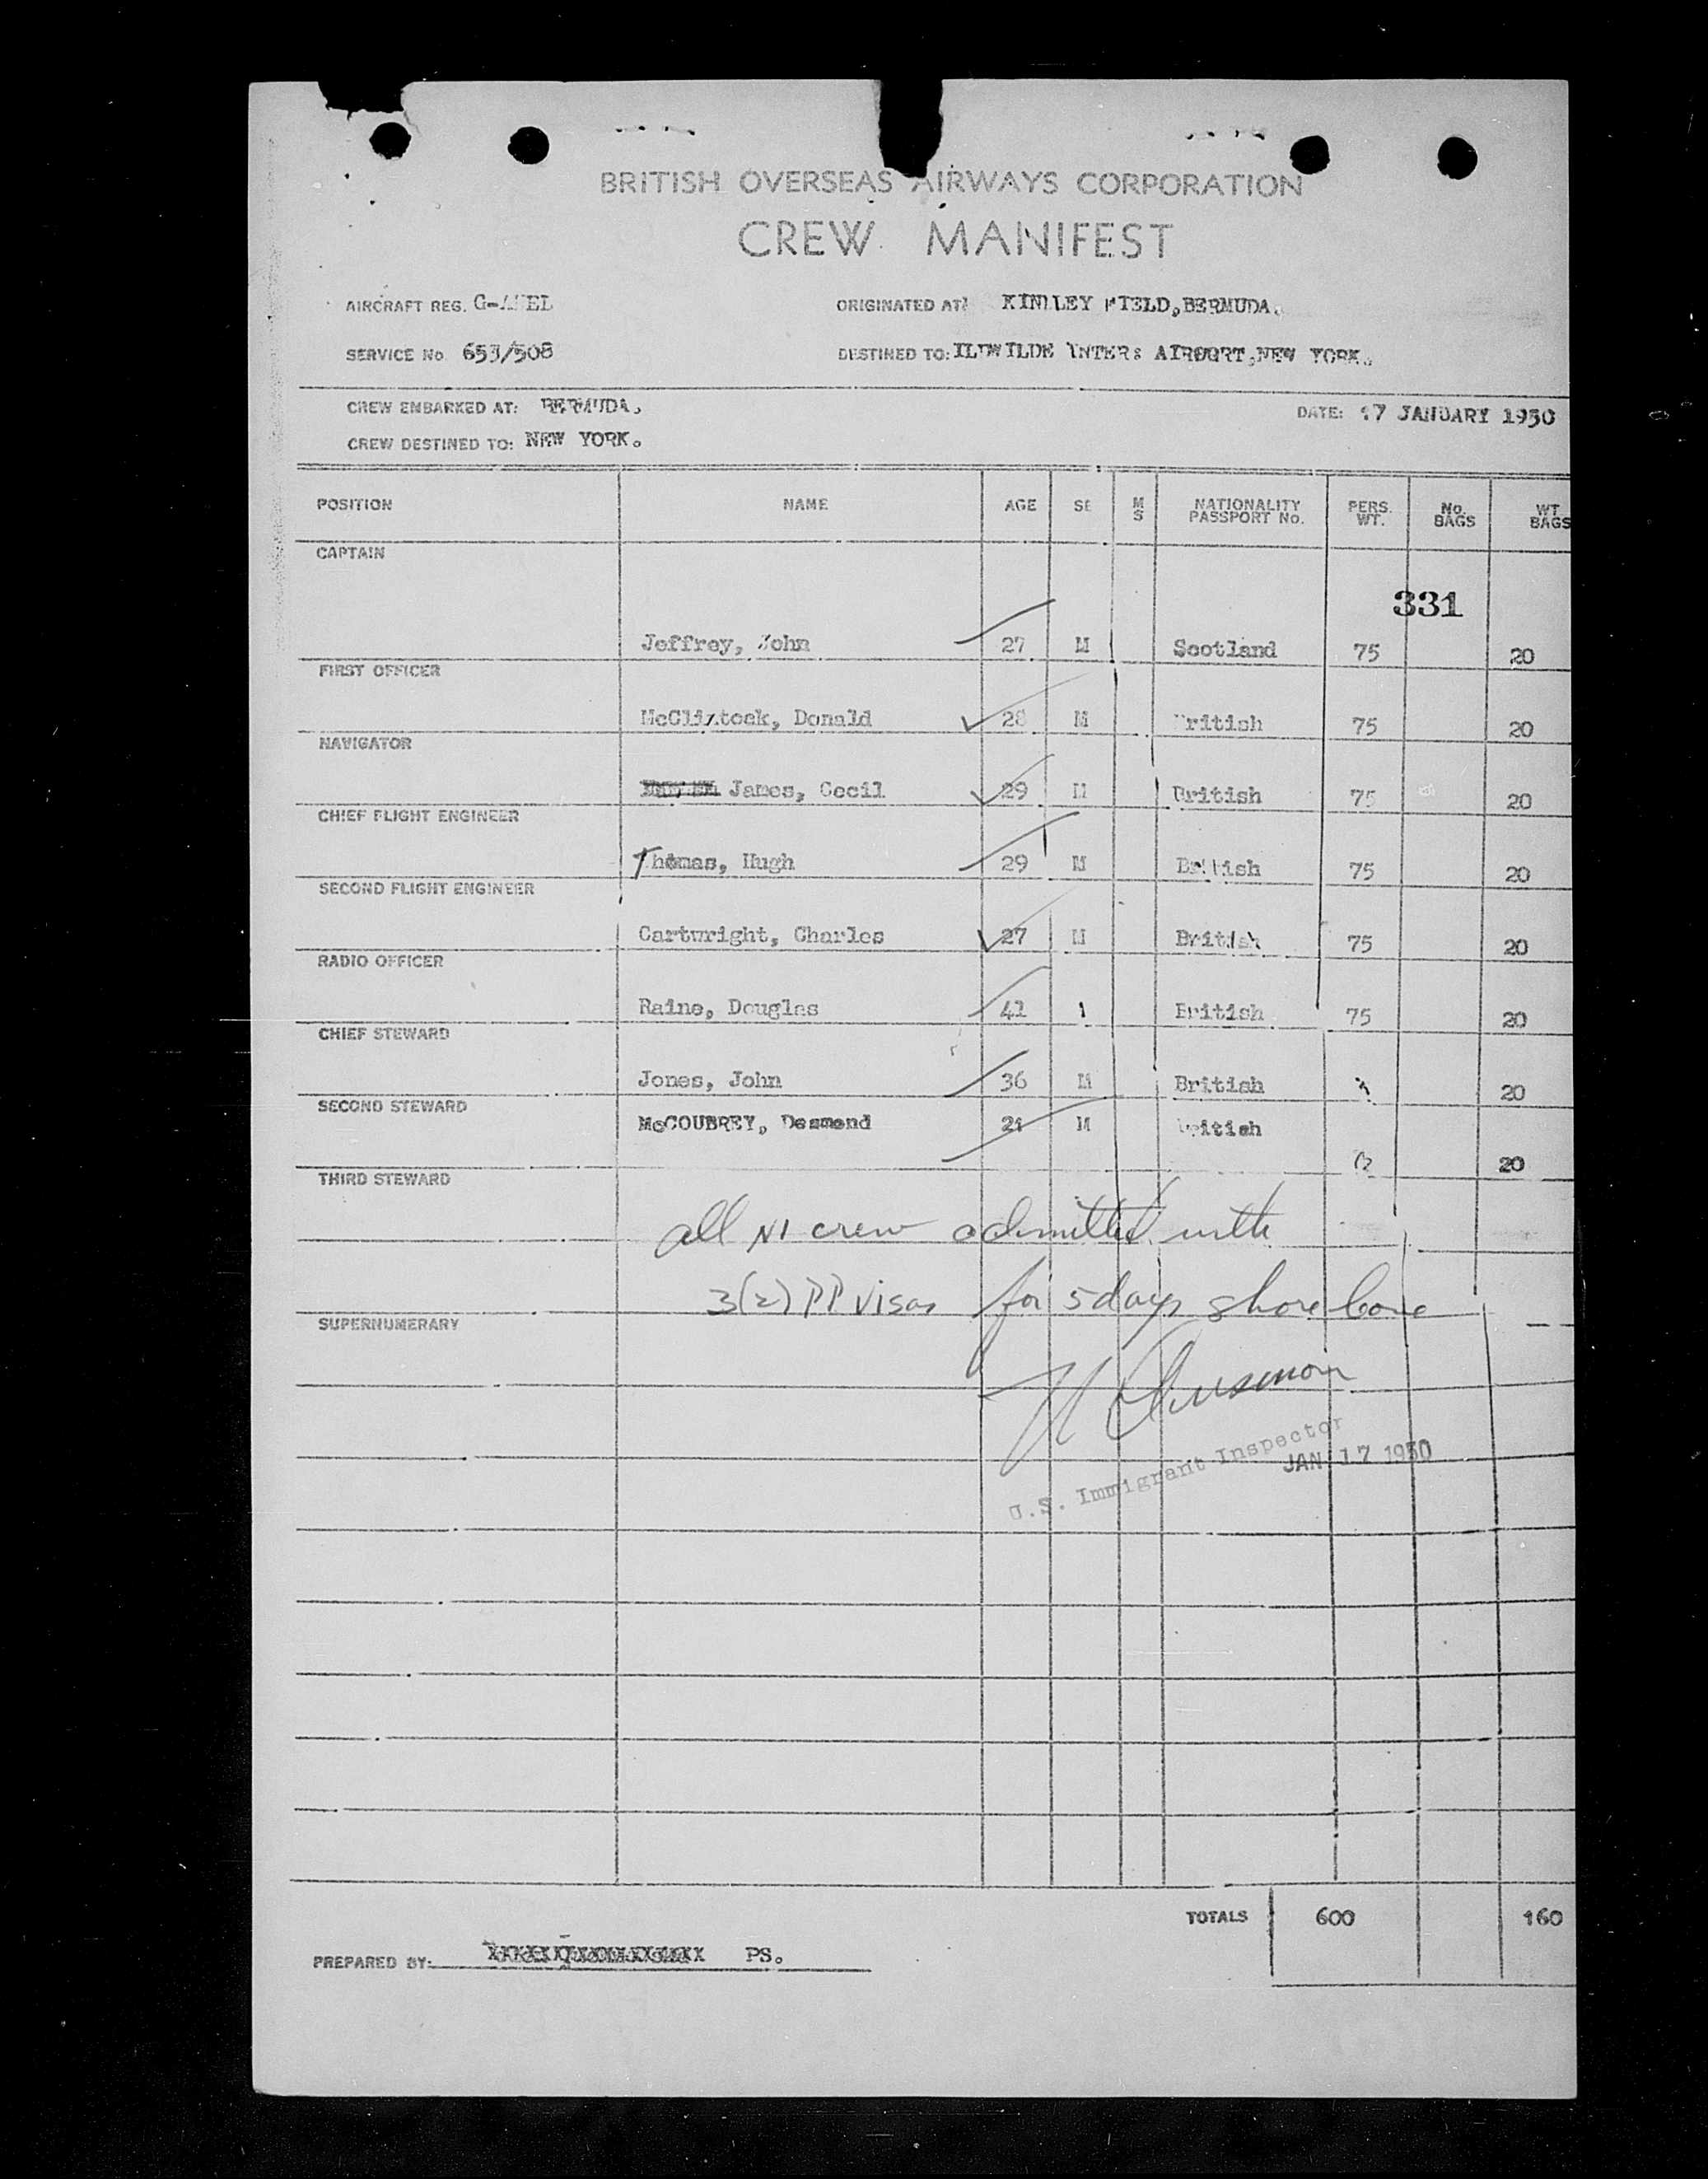 BRITISH OVERSEAS AIRWAYS CORPORATION
CREW MANIFEST
AIRCRAFT REG.
ORIGINATED AT: KINDLEY FIELD, BERMUDA.
SERVICE No. 653/508
DESTINED TO: IDLEWILDE INTER: AIRPORT, NEW YORK.
CREW EMBARKED AT: BERMUDA.
DATE: 17 JANUARY 1950
CREW DESTINED TO: NEW YORK.
POSITION NAME AGE SE M S NATIONALITY PASSPORT No. PERS. WT. No. BAGS WT BAGS
CAPTAIN
331
Jeffrey, John 27 M Scotland 75 20
FIRST OFFICER
McClintock, Donald 28 M British 75 20
NAVIGATOR
James, Cecil 29 M British 75 20
CHIEF FLIGHT ENGINEER
Thomas, Hugh 29 M British 75 20
SECOND FLIGHT ENGINEER
Cartwright, Charles 27 M British 75 20
RADIO OFFICER
Raine, Douglas 41 British 75 20
CHIEF STEWARD
Jones, John 36 M British 20
SECOND STEWARD
McCOUBREY, Desmond 21 M British
20
THIRD STEWARD
all NI crew admitted with
3(2) PP visas for 5 days shore leave
SUPERNUMERARY
U.S. Immigrant Inspector
JAN 17 1950
TOTALS 600 160
PREPARED BY: PS.